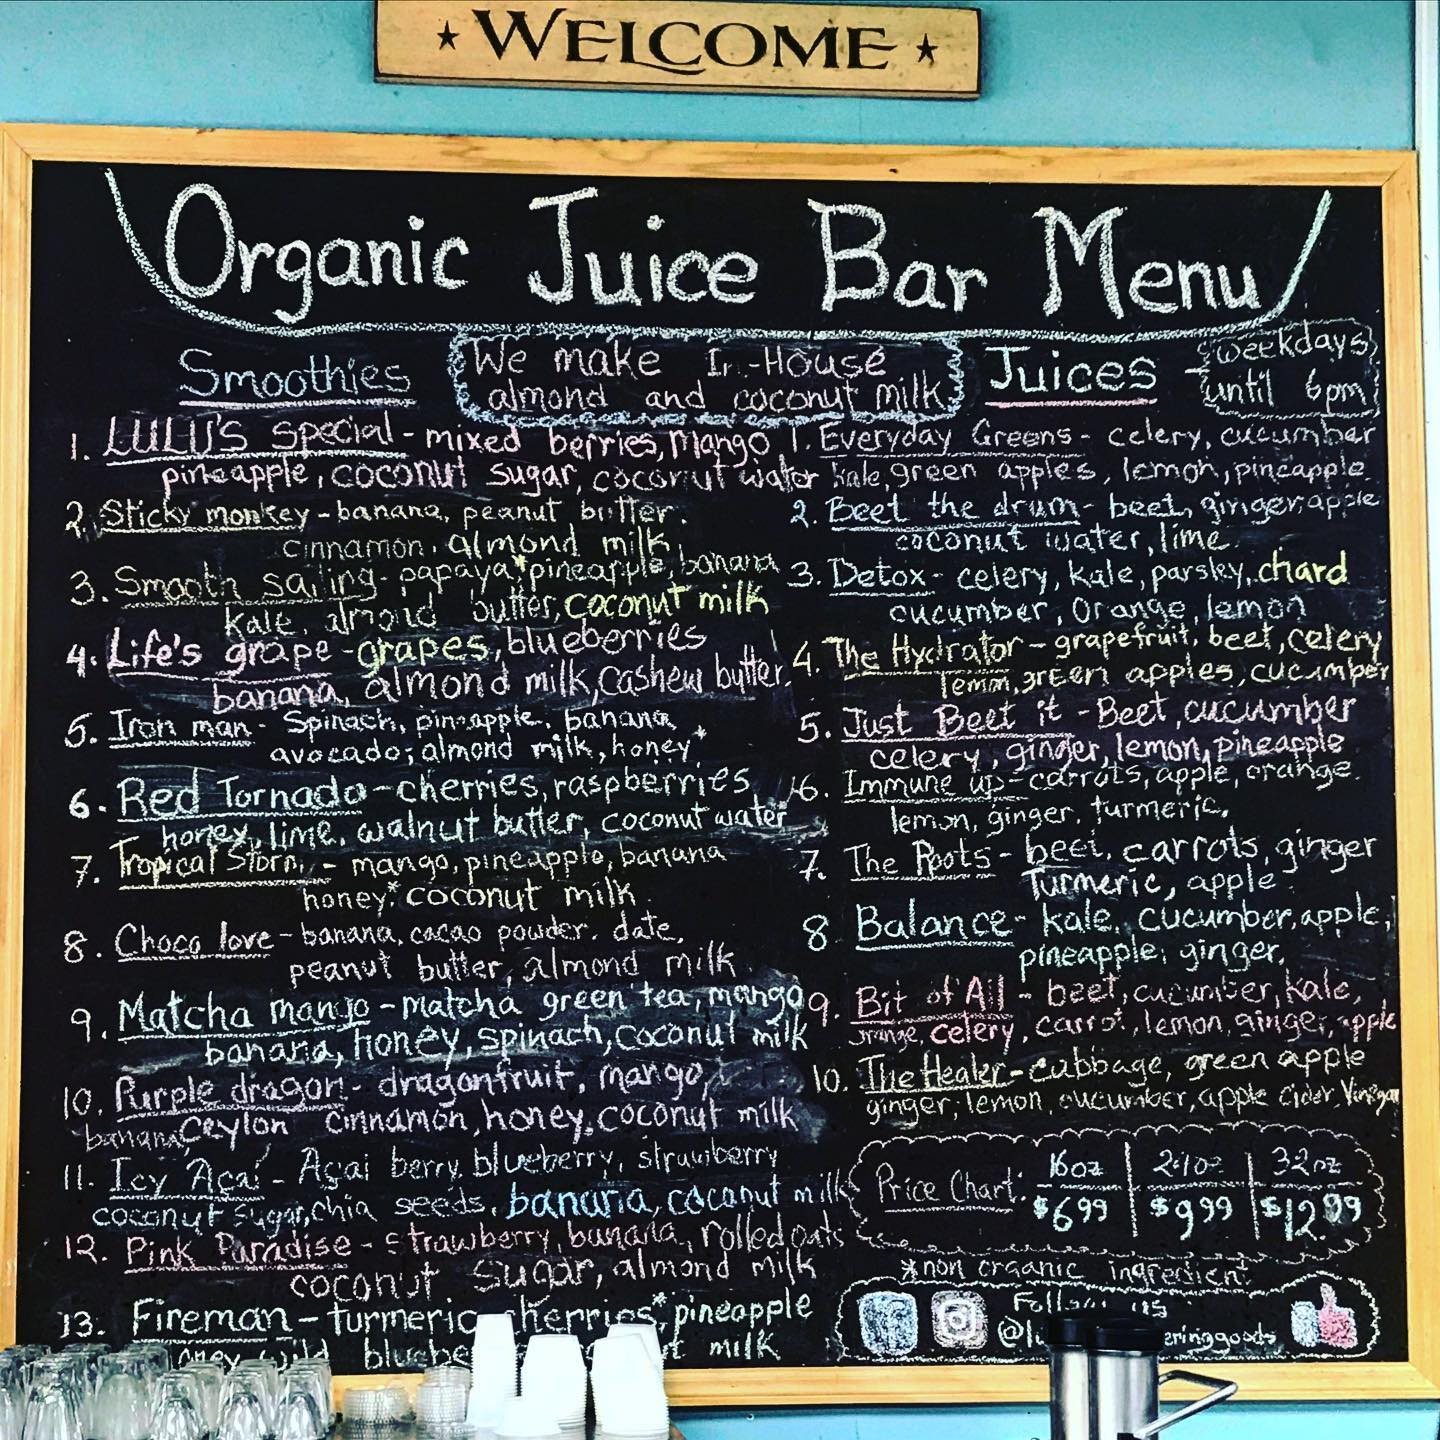 ★ WELCOME ★
Organic Juice Bar Menu
Smoothies
We make In-House
almond and coconut milk
1. LULU'S special - mixed berries, mango
pineapple, coconut sugar, coconut water
2. Sticky monkey - banana, peanut butter.
cinnamon, almond milk
3. Smooth sailing - papaya,* pineapple, banana
kale, almond butter, coconut milk
4. Life's grape - grapes, blueberries
banana, almond milk, cashew butter.
5. Iron man - Spinach, pineapple, banana,
avocado, almond milk, honey*
6. Red Tornado - cherries, raspberries
honey, lime, walnut butter, coconut water
7. Tropical Storm - mango, pineapple, banana
honey* coconut milk
8. Choco love - banana, cacao powder, date,
peanut butter, almond milk
9. Matcha mango - matcha green tea, mango
banana, honey, spinach, coconut milk
10. Purple dragon - dragonfruit, mango,
banana, Ceylon cinnamon, honey, coconut milk
11. Icy Açai - Açai berry, blueberry, strawberry
coconut sugar, chia seeds, banana, coconut milk
12. Pink Paradise - strawberry, banana, rolled oats
coconut sugar, almond milk
13. Fireman - turmeric, cherries,* pineapple
wild milk
Juices - weekdays
until 6pm
1. Everyday Greens - celery, cucumber
kale, green apples, lemon, pineapple
2. Beet the drum - beet, ginger, apple
coconut water, lime.
3. Detox - celery, kale, parsley, chard
cucumber, orange, lemon
4. The Hydrator - grapefruit, beet, celery
lemon, green apples, cucumber
5. Just Beet it - Beet, cucumber
celery, ginger, lemon, pineapple
6. Immune up - carrots, apple, orange.
lemon, ginger, turmeric.
7. The Roots - beet, carrots, ginger
Turmeric, apple
8 Balance - kale, cucumber, apple,
pineapple, ginger.
9. Bit of All - beet, cucumber, kale,
orange, celery, carrot, lemon, ginger, apple
10. The Healer - cabbage, green apple
ginger, lemon, cucumber, apple cider, Vinegar
Price Chart: 16oz 24oz 32oz
$6.99 $9.99 $12.99
*non organic ingredient
Follow us